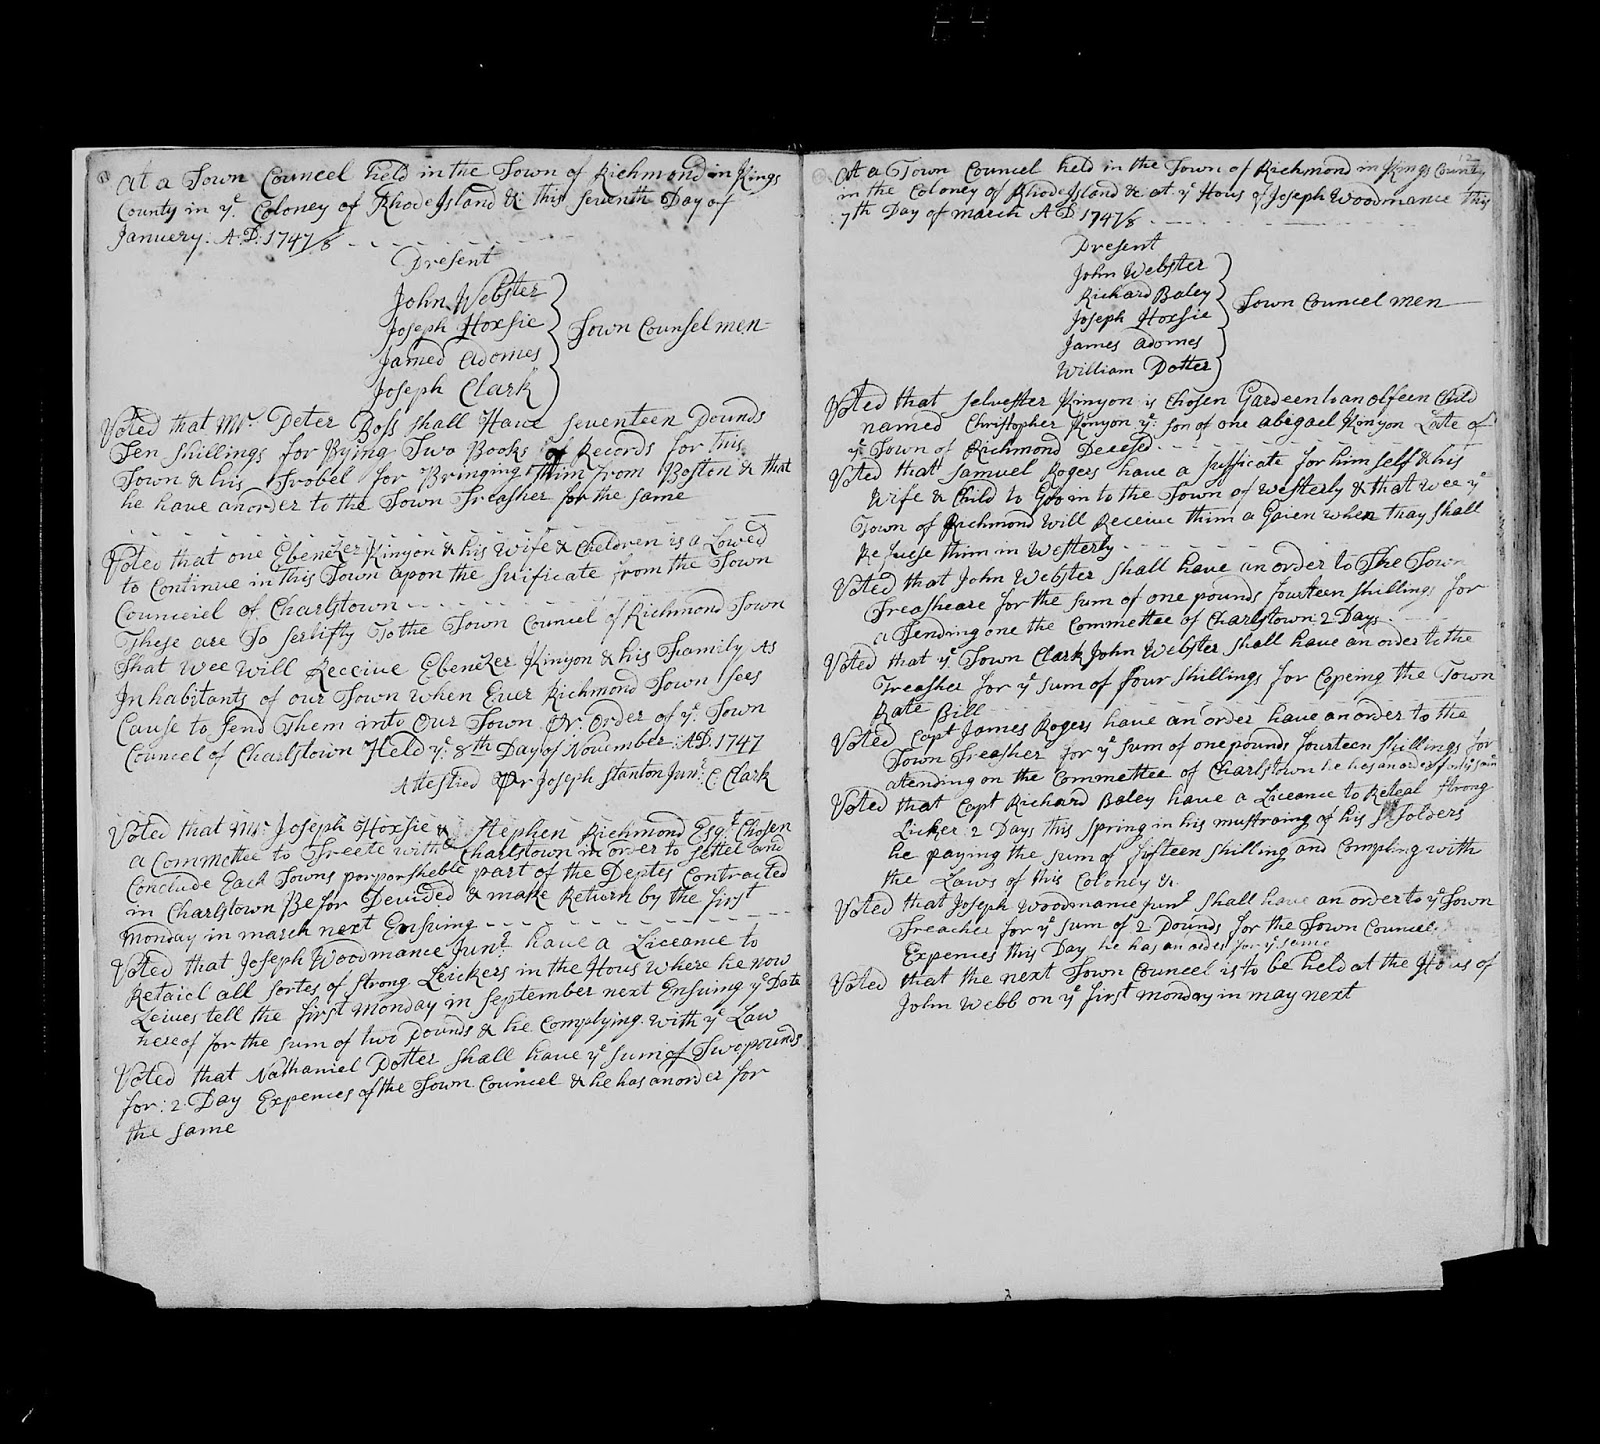 At a Town Councel held in the Town of Richmond in Kings
County in ye. Coloney of Rhode Island &c this Seventh Day of
January: A:D: 1747/8
Present
John Webster
Joseph Hoxsie
James Adomes
Joseph Clark
Town Counsel men
Voted that Mr. Peter Boss shall Have seventeen Pounds
Ten shillings for Bying Two Books of Records for this
Town & his Trobel for Bringing them from Boston & that
he have an order to the Town Treasher for the same
Voted that one Ebenezer Kinyon & his Wife & Children is a Lowed
to Continue in this Town upon the Sirificate from the Town
Counciel of Charlstown
These are To sertifty To the Town Councel of Richmond Town
That Wee Will Receive Ebenezer Kinyon & his Family As
Inhabitants of our Town when Ever Richmond Town Sees
Cause to Send Them into Our Town Or. Order of ye. Town
Councel of Charlstown Held ye. 8th Day of November: A:D: 1747
Attestied Pr Joseph Stanton Junr: C: Clark
Voted that Mr. Joseph Hoxsie & Stephen Richmond Esqr. Chosen
a Commettee to Treete with Charlstown in order to settel and
Conclude Each Towns porporsheble part of the Deptes Contracted
in Charlstown Befor Devided & make Return by the first
Monday in march next Ensuing
Voted that Joseph Woodmance Junr. have a Liceance to
Retaiel all sortes of strong Leickers in the Hous Where he now
Leives tell the first Monday in September next Ensuing ye Date
hereof for the sum of two pounds & he Complying with ye Law
Voted that Nathaniel Potter shall have ye sum of Two pounds
for: 2: Day Expences of the Town Councel & he has an order for
the same
12
At a Town Councel held in the Town of Richmond in Kings County
in the Coloney of Rhode Island & at ye Hous of Joseph Woodmance this
7th Day of march A D 1747/8
Present
John Webster
Richard Baley
Joseph Hoxsie
James Adomes
William Potter
Town Councel men
Voted that Selvester Kinyon is Chosen Gardeen to an offeen Child
named Christopher Kinyon ye. son of one abigael Kinyon Late of
ye Town of Richmond Decesed
Voted that Samuel Rogers have a Sifficate for himself & his
Wife & Child to Goo in to the Town of Westerly & that Wee ye
Town of Richmond Will Receive them a Gaien when thay shall
Refuese them in Westerly
Voted that John Webster shall have an order to The Town
Treasheare for the sum of one pounds fourteen shillings for
a Tending one the Committee of Charlstown 2 Days
Voted that ye Town Clark John Webster shall have an order to the
Treasher for ye sum of four shillings for Copeing the Town
Rate Bill
Voted Capt James Rogers have an order have an order to the
Town Treasher for ye sum of one pounds fourteen shillings for
atending on the Committee of Charlstown he has an order for ye same
Voted that Capt Richard Baley have a Liceance to Reteal strong
Licker 2 Days this spring in his mustraing of his Soldiers
he paying the sum of fifteen shilling and Compling with
the Laws of this Coloney &c
Voted that Joseph Woodmance Junr shall have an order to ye Town
Treacher for ye sum of 2 Pounds for the Town Councel
Expences this Day he has an order for ye same
Voted that the next Town Councel is to be held at the Hous of
John Webb on ye first monday in may next